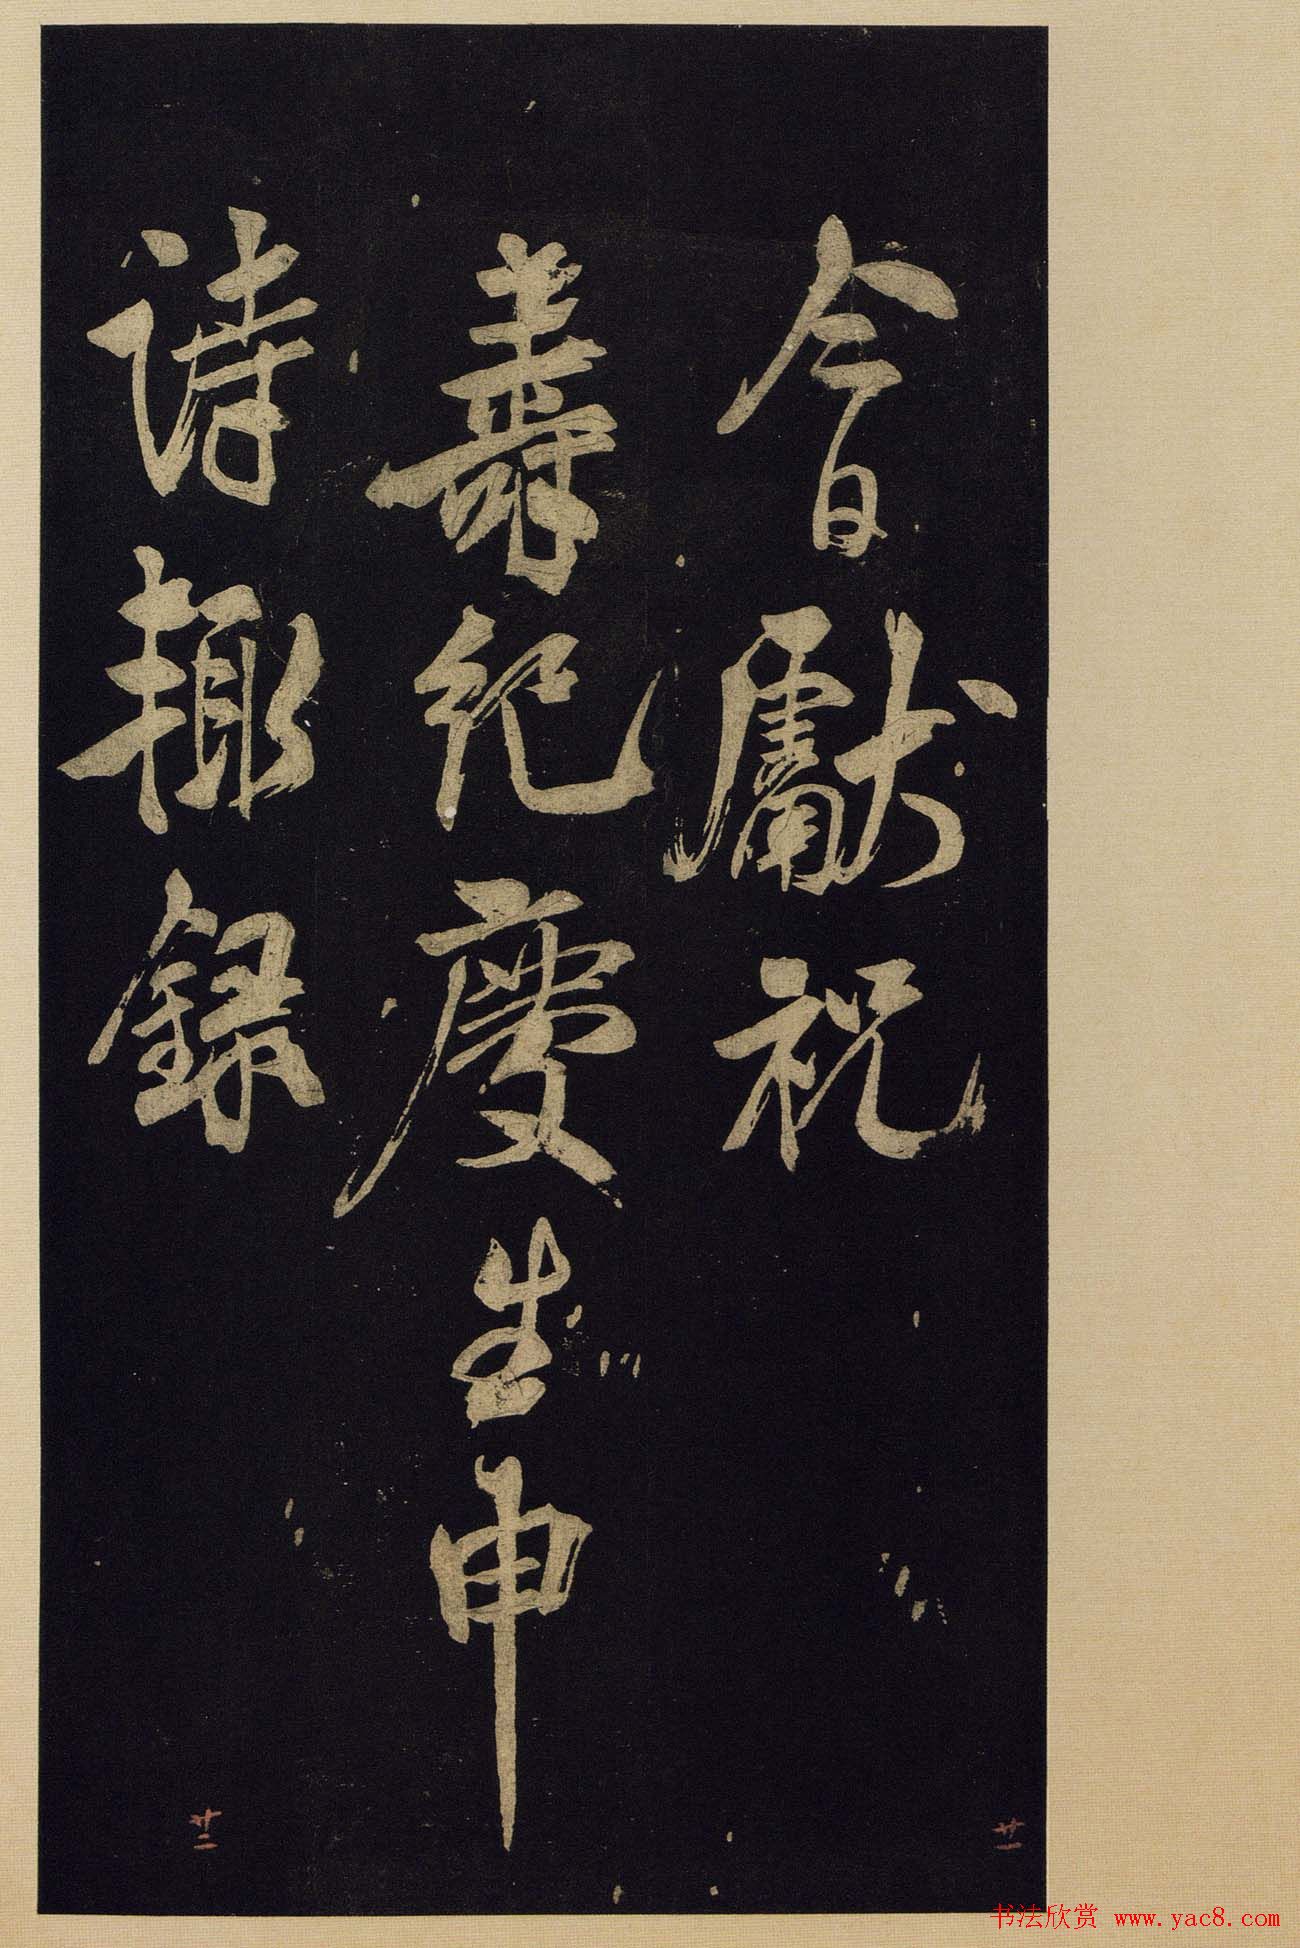 今日獻祝
壽紀慶生申
詩輙録
廿一
廿二
书法欣赏 www.yac8.com